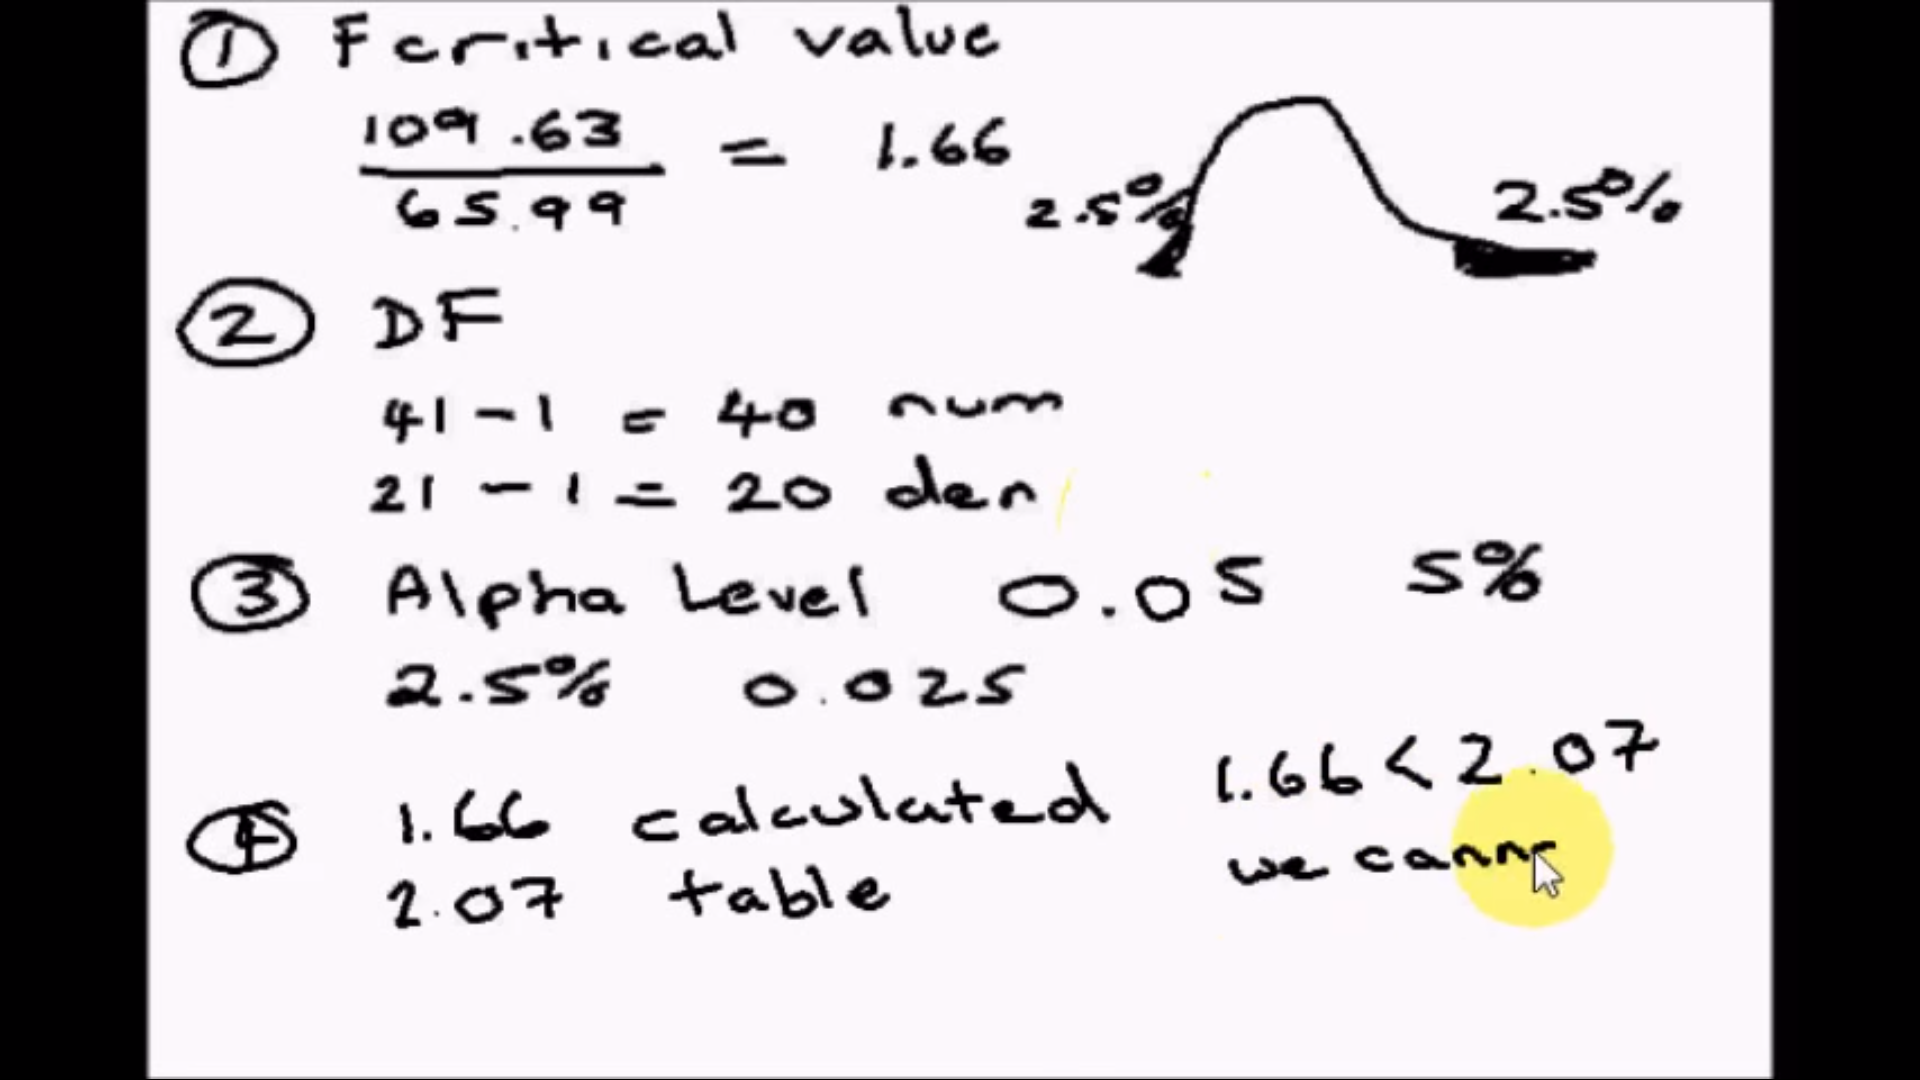 ① F critical value
109.63
65.99
= 1.66
2.5%
2.5%
② DF
41 - 1 = 40 num
21 - 1 = 20 den
③ Alpha Level 0.05 5%
2.5% 0.025
④ 1.66 calculated
2.07 table
1.66 < 2.07
we cann